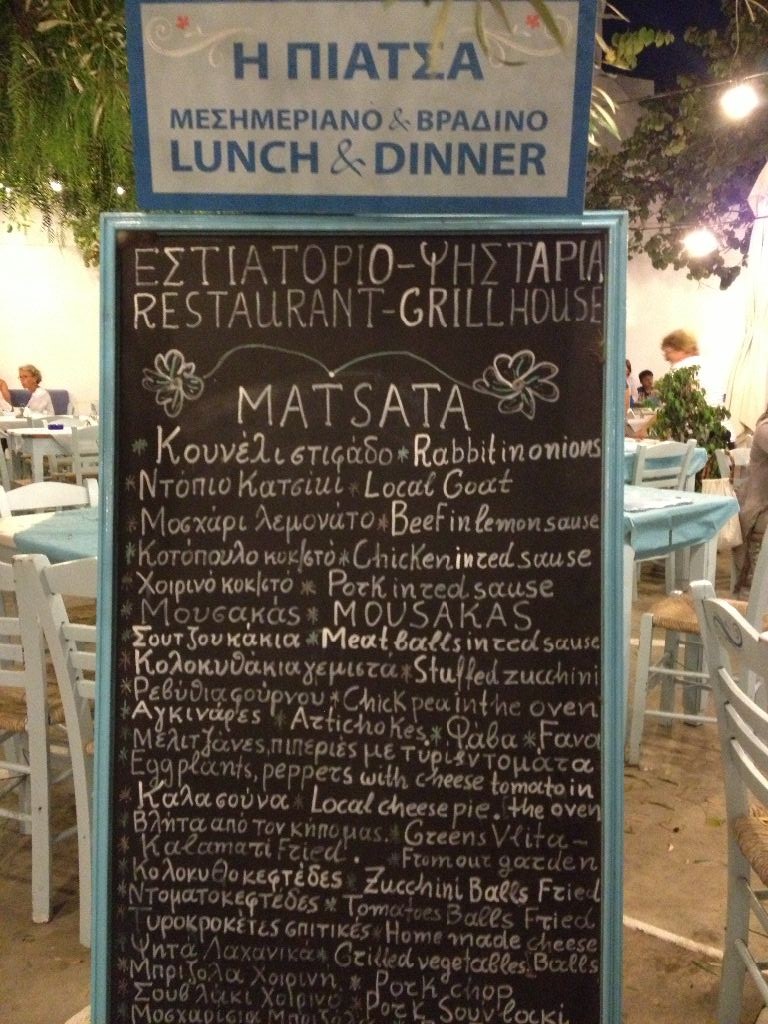 Η ΠΙΑΤΣΑ
ΜΕΣΗΜΕΡΙΑΝΟ & ΒΡΑΔΙΝΟ
LUNCH & DINNER
ΕΣΤΙΑΤΟΡΙΟ-ΨΗΣΤΑΡΙΑ
RESTAURANT-GRILL HOUSE
MATSATA
* Κουνέλι στιφάδο * Rabbit in onions
* Ντόπιο Κατσίκι * Local Goat
* Μοσχάρι λεμονάτο * Beef in lemon sause
* Κοτόπουλο κοκ/στό * Chicken in red sause
* Χοιρινό κοκ/στό * Pork in red sause
* Μουσακάς * MOUSAKAS
* Σουτζουκάκια * Meat balls in red sause
* Κολοκυθάκια γεμιστα * Stuffed zucchini
* Ρεβύθια φούρνου * Chick pea in the oven
* Αγκινάρες * Artichokes. * Φάβα * Fava
* Μελιτζάνες, πιπεριές με τυρί ντομάτα
Egg plants, peppers with cheese tomato in
* Καλασούνα * Local cheese pie. the oven
* Βλήτα από τον κήπο μας. * Greens Vlita -
* Kalamari Fried. * From our garden
* Κολοκυθοκεφτέδες * Zucchini Balls Fried
* Ντοματοκεφτέδες * Tomatoes Balls Fried
* Τυροκροκέτες σπιτικές * Home made cheese
* Ψητά Λαχανικά * Grilled vegetables Balls
* Μπριζόλα Χοιρινη * Pork chop
* Σουβλάκι Χοιρινό * Pork Souvlocki
* Μοσχαρίσια